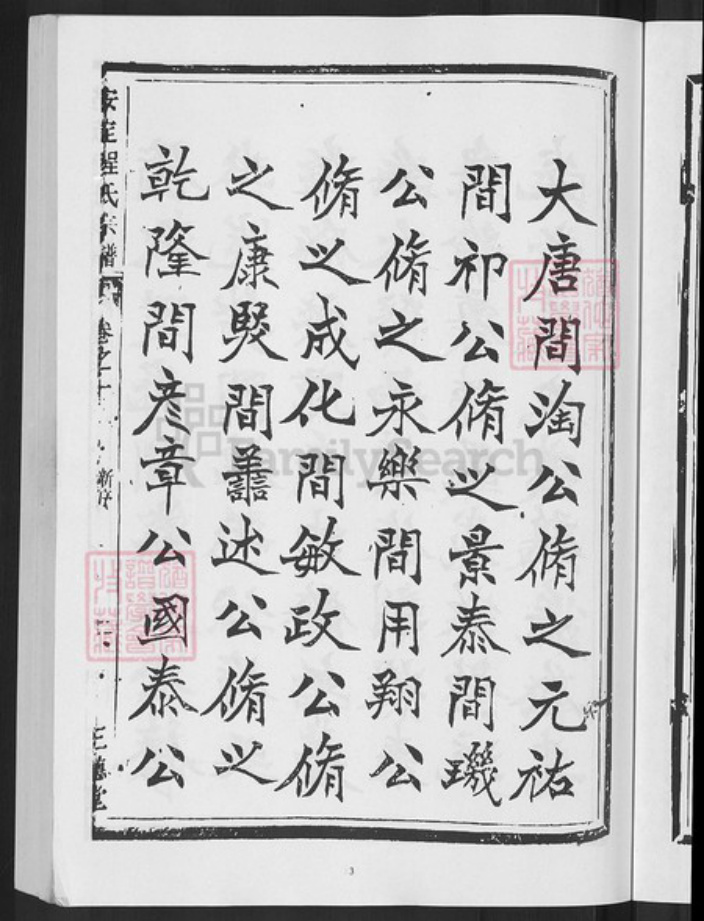 大唐間淘公脩之元祐
間祁公脩之景泰間璣
公脩之永樂間用翔公
脩之成化間敏政公脩
之康熙間譱述公脩之
乾隆間彦章公國泰公
安定程氏宗譜
卷之十
新序
三
FamilySearch
3